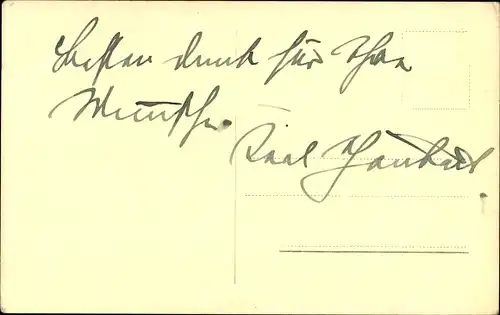 Besten Dank für Ihre
Wünsche.
Karl